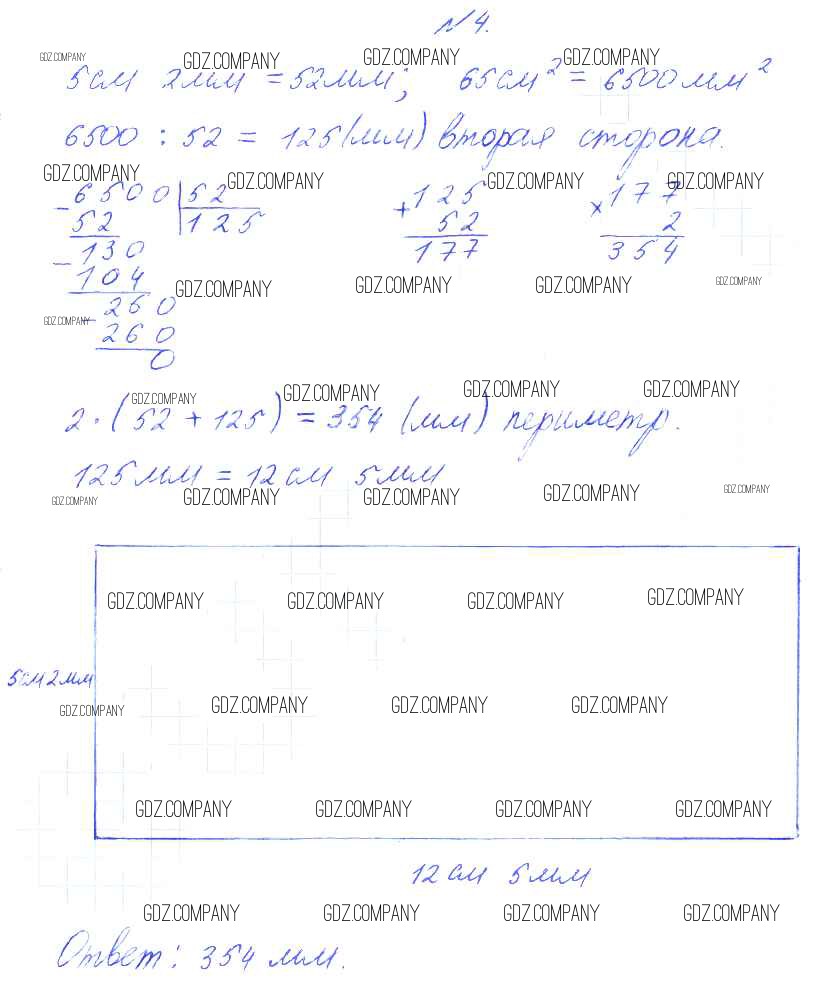 №4.
GDZ.COMPANY GDZ.COMPANY GDZ.COMPANY GDZ.COMPANY
5см 2мм = 52мм; 65см² = 6500мм²
6500 : 52 = 125(мм) вторая сторона.
GDZ.COMPANY GDZ.COMPANY GDZ.COMPANY GDZ.COMPANY
- 6500 | 52 + 125 × 177
52 125 52 2
- 130 177 354
104
GDZ.COMPANY GDZ.COMPANY GDZ.COMPANY GDZ.COMPANY
- 260
GDZ.COMPANY
260
0
GDZ.COMPANY GDZ.COMPANY GDZ.COMPANY GDZ.COMPANY
2·(52 + 125) = 354 (мм) периметр.
125мм = 12см 5мм
GDZ.COMPANY GDZ.COMPANY GDZ.COMPANY GDZ.COMPANY GDZ.COMPANY
GDZ.COMPANY GDZ.COMPANY GDZ.COMPANY GDZ.COMPANY
5см2мм
GDZ.COMPANY GDZ.COMPANY GDZ.COMPANY GDZ.COMPANY
GDZ.COMPANY GDZ.COMPANY GDZ.COMPANY GDZ.COMPANY
12см 5мм
GDZ.COMPANY GDZ.COMPANY GDZ.COMPANY GDZ.COMPANY
Ответ: 354 мм.